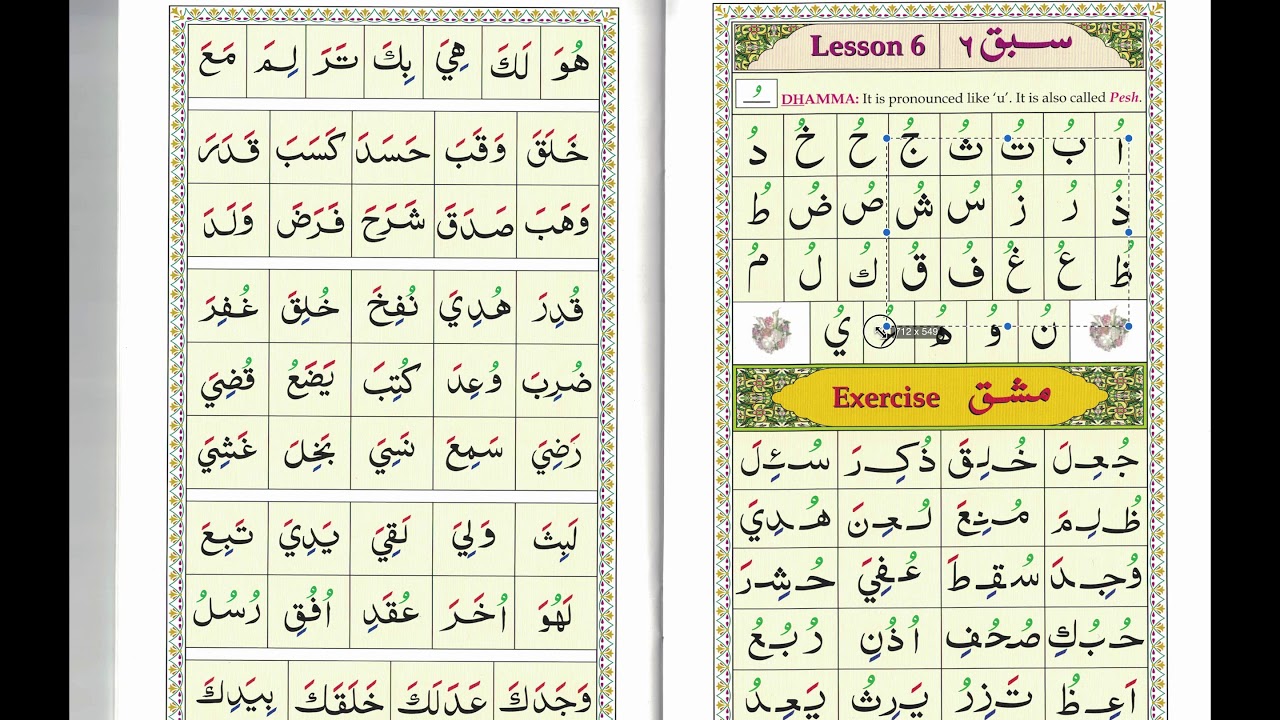 هُوَ لَكَ هِيَ بِكَ تَرَ لِمَ مَعَ
خَلَقَ وَقَبَ حَسَدَ كَسَبَ قَدَرَ
وَهَبَ صَدَقَ شَرَحَ فَرَضَ وَلَدَ
قُدِرَ هُدِيَ نُفِخَ خُلِقَ غُفِرَ
ضُرِبَ وُعِدَ كُتِبَ يَضَعُ قُضِيَ
رَضِيَ سَمِعَ نَسِيَ بَخِلَ غَشِيَ
لَبِثَ وَلِيَ لَقِيَ يَدِيَ تَبِعَ
لَهُوَ اُخَرَ عُقَدِ اُفُقِ رُسُلُ
وَجَدَكَ عَدَلَكَ خَلَقَكَ بِيَدِكَ
Lesson 6 سبق ٦
DHAMMA: It is pronounced like ‘u’. It is also called Pesh.
اُ بُ تُ ثُ جُ حُ خُ دُ
ذُ رُ زُ سُ شُ صُ ضُ طُ
ظُ عُ غُ فُ قُ كُ لُ مُ
نُ وُ هُ يُ
712 x 549
Exercise مشق
جُعِلَ خُلِقَ ذُكِرَ سُئِلَ
ظُلِمَ مُنِعَ لُعِنَ هُدِيَ
وُجِدَ سُقِطَ عُفِيَ حُشِرَ
حُبُكِ صُحُفِ اُذُنِ رُبُعُ
اَعِظُ تَزِرُ يَرِثُ يَعِدُ